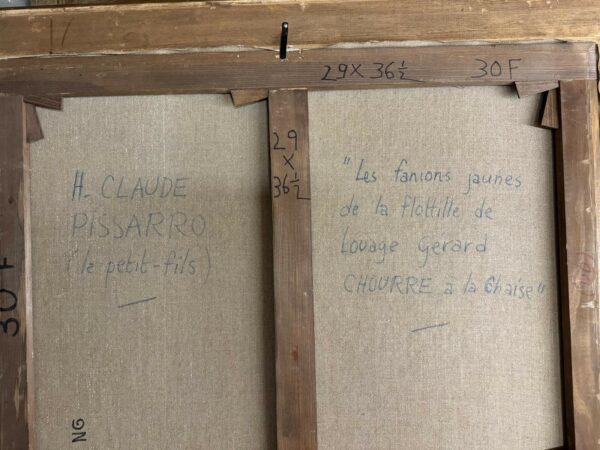 29 X 36 1/2 30 F
29
X
36 1/2
H. CLAUDE
PISSARRO
(le petit-fils)
"Les fanions jaunes
de la flottille de
Louage Gerard
CHOURRE a la Chaise"
30 F
NG